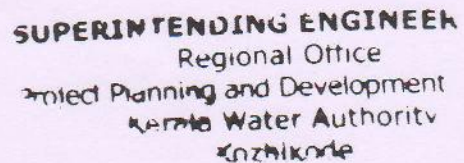 SUPERINTENDING ENGINEER
Regional Office
Project Planning and Development
Kerala Water Authority
Kozhikode